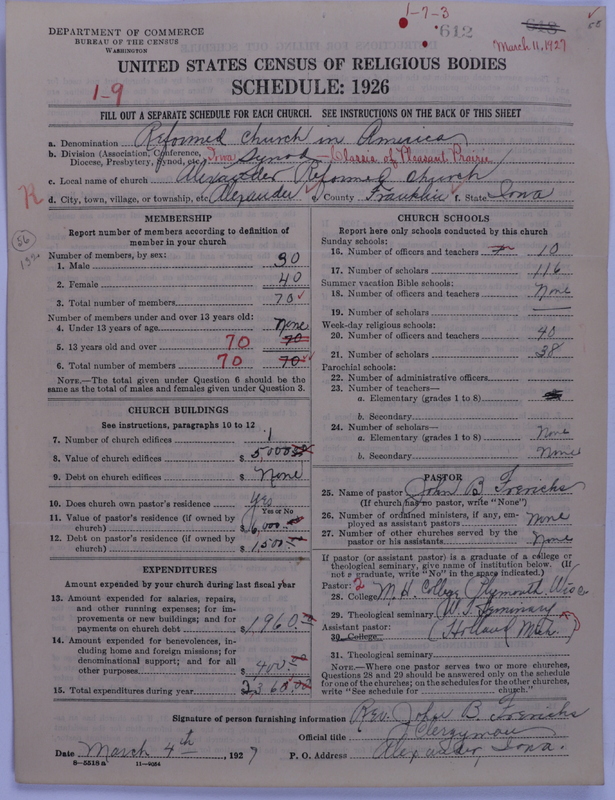 1-7-3
612
March 11, 1927
DEPARTMENT OF COMMERCE
BUREAU OF THE CENSUS
WASHINGTON
UNITED STATES CENSUS OF RELIGIOUS BODIES
SCHEDULE: 1926
1-9
FILL OUT A SEPARATE SCHEDULE FOR EACH CHURCH. SEE INSTRUCTIONS ON THE BACK OF THIS SHEET
a. Denomination Reformed Church in America
b. Division (Association, Conference, Diocese, Presbytery, Synod, etc. Iowa Synod - Classis of Pleasant Prairie
c. Local name of church Alexander Reformed Church
d. City, town, village, or township, etc. Alexander e. County Franklin f. State Iowa
R
56
MEMBERSHIP
Report number of members according to definition of
member in your church
Number of members, by sex:
1. Male 30
2. Female 40
3. Total number of members 70
Number of members under and over 13 years old:
4. Under 13 years of age None
5. 13 years old and over 70 70
6. Total number of members 70 70
NOTE.—The total given under Question 6 should be the
same as the total of males and females given under Question 3.
CHURCH BUILDINGS
See instructions, paragraphs 10 to 12
7. Number of church edifices 1
8. Value of church edifices $ 5,000.00
9. Debt on church edifices $ None
10. Does church own pastor's residence yes
Yes or No
11. Value of pastor's residence (if owned by
church) $ 6,000.00
12. Debt on pastor's residence (if owned by
church) $ 1,500.00
EXPENDITURES
Amount expended by your church during last fiscal year
13. Amount expended for salaries, repairs,
and other running expenses; for im-
provements or new buildings; and for
payments on church debt $ 1,960.00
14. Amount expended for benevolences, in-
cluding home and foreign missions; for
denominational support; and for all
other purposes $ 400.00
15. Total expenditures during year $ 2,360.00
CHURCH SCHOOLS
Report here only schools conducted by this church
Sunday schools:
16. Number of officers and teachers 10
17. Number of scholars 116
Summer vacation Bible schools:
18. Number of officers and teachers None
19. Number of scholars —
Week-day religious schools:
20. Number of officers and teachers 40
21. Number of scholars 38
Parochial schools:
22. Number of administrative officers
23. Number of teachers—
a. Elementary (grades 1 to 8)
b. Secondary
24. Number of scholars—
a. Elementary (grades 1 to 8) None
b. Secondary None
PASTOR
25. Name of pastor John B Frerichs
(If church has no pastor, write "None")
26. Number of ordained ministers, if any, em-
ployed as assistant pastors None
27. Number of other churches served by the
pastor or his assistants None
If pastor (or assistant pastor) is a graduate of a college or
theological seminary, give name of institution below. (If
not a graduate, write "No" in the space indicated.)
Pastor: 2
28. College M. H. College Plymouth, Wis
29. Theological seminary W. T. Seminary
Assistant pastor:
30. College (Holland Mich.)
31. Theological seminary
NOTE.—Where one pastor serves two or more churches,
Questions 28 and 29 should be answered only on the schedule
for one of the churches; on the schedules for the other churches,
write "See schedule for church."
Signature of person furnishing information Rev. John B. Frerichs
Official title Clergyman
Date March 4th, 1927 P. O. Address Alexander, Iowa.
8—5518a 11—9054